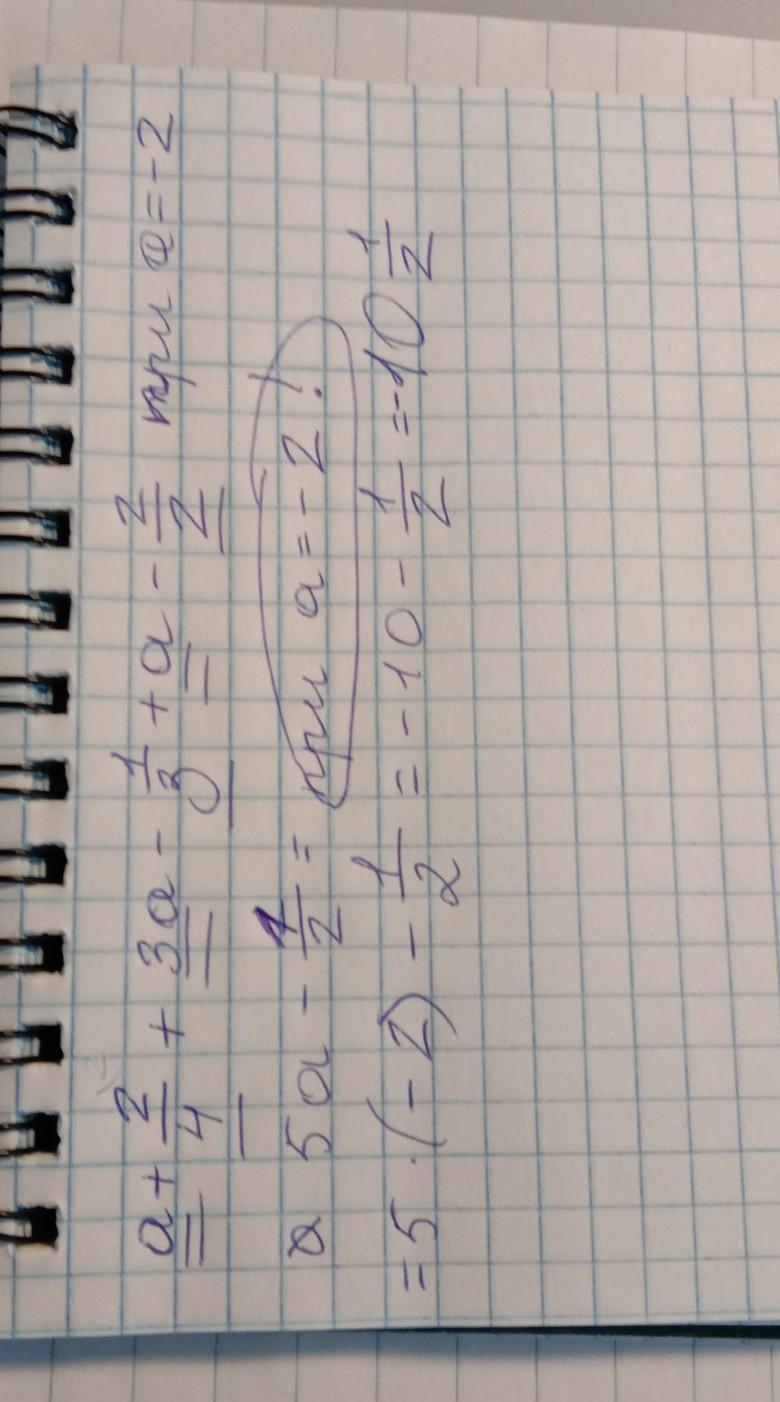 a + 2/4 + 3a - 1/3 + a - 2/2 при a = -2
5a - 1/2 = при a = - 2!
= 5 · (- 2) - 1/2 = - 10 - 1/2 = -10 1/2